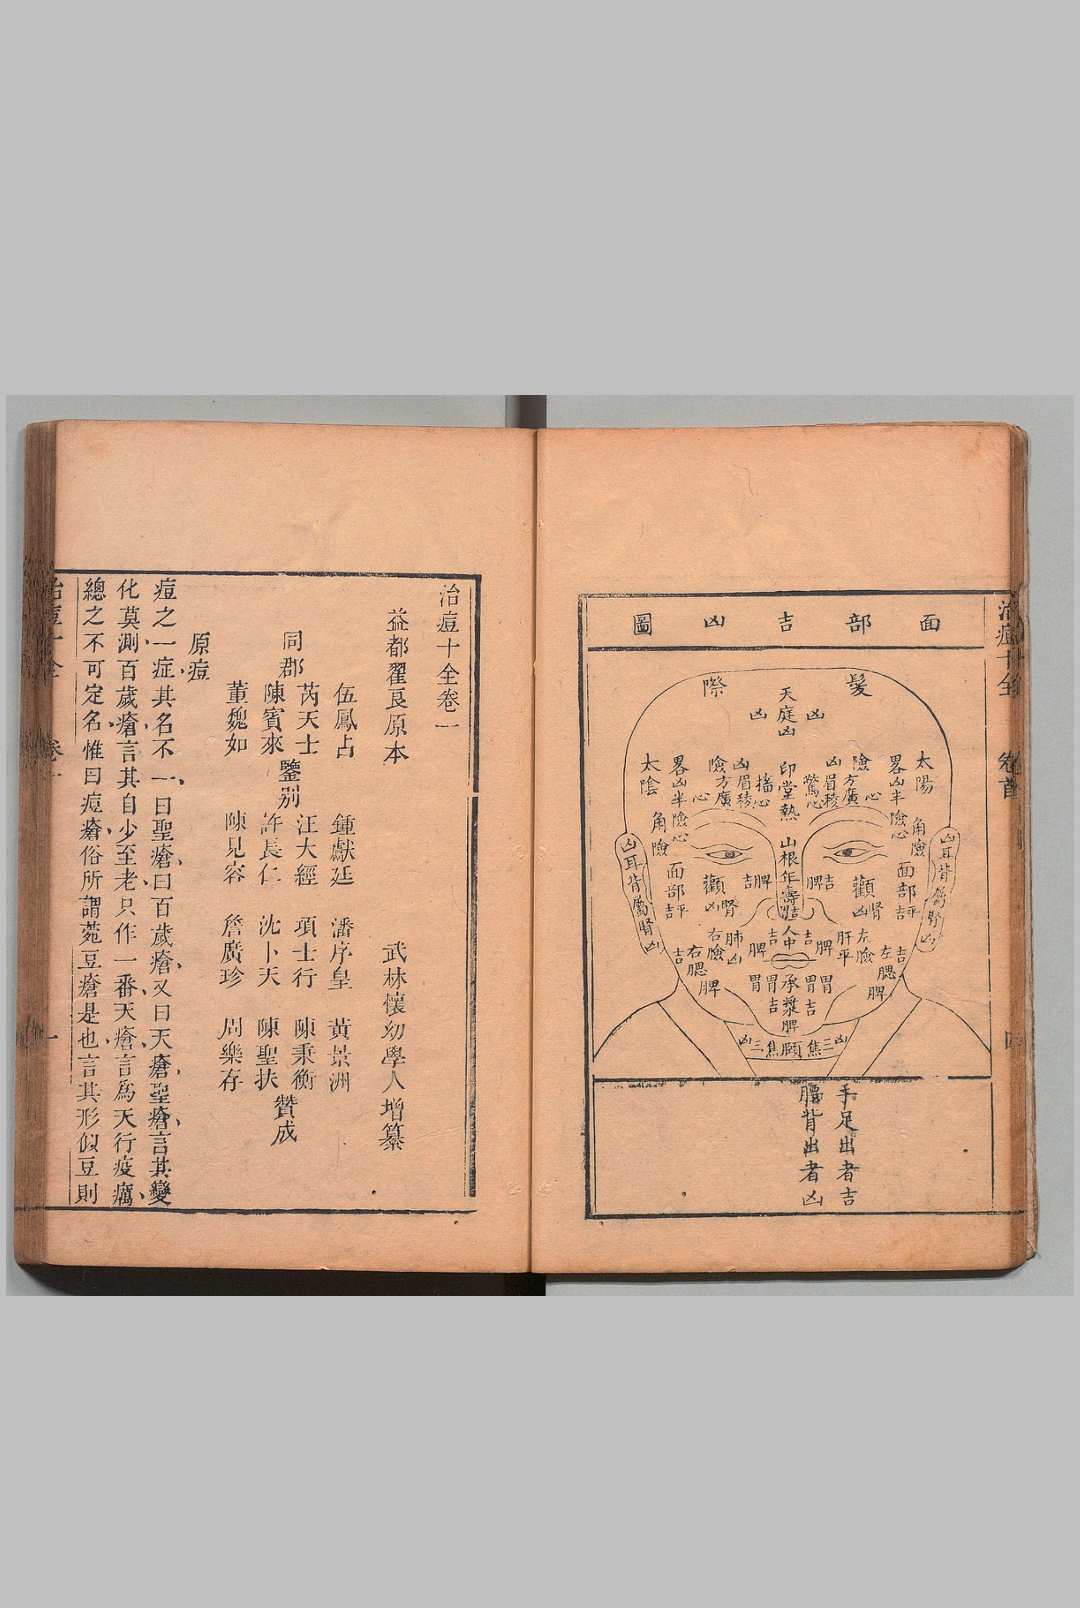 治痘十全
卷首
四
面部吉凶圖
髮際
天庭凶
凶
凶
太陽
畧凶半險心
角險
險方廣心
凶眉稜驚心
印堂熱
凶眉稜搐心
險方廣心
畧凶半險心
太陰
角險
凶耳背屬腎凶
面部平吉
顴腎凶
脾吉
山根年壽吉
脾吉
顴腎凶
面部平吉
凶耳背屬腎凶
左腮脾吉
左險
肝平
脾吉
人中
脾吉
肺凶
右險
右腮脾吉
胃
胃吉
承漿脾
胃吉
胃
凶三焦頤焦三凶
手足出者吉
腰背出者凶
治痘十全卷一
益都翟良原本
武林懷幼學人增纂
伍鳳占 鍾獻廷 潘序皇 黃景洲
芮天士 汪大經 項士行 陳秉衡
同郡 鑒別 贊成
陳賓來 許長仁 沈卜天 陳聖扶
董魏如 陳見容 詹廣珍 周樂存
原痘
痘之一症其名不一曰聖瘡曰百歲瘡又曰天瘡聖瘡言其變
化莫測百歲瘡言其自少至老只作一番天瘡言爲天行疫癘
總之不可定名惟曰痘瘡俗所謂菀豆瘡是也言其形似豆則
治痘十全
卷一
一